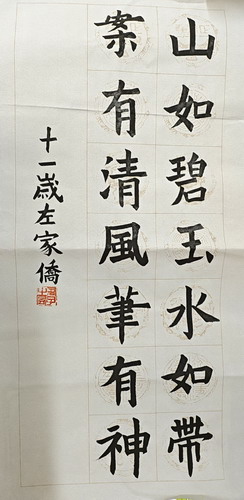 山如碧玉水如帶
案有清風筆有神
十一歲左家僑